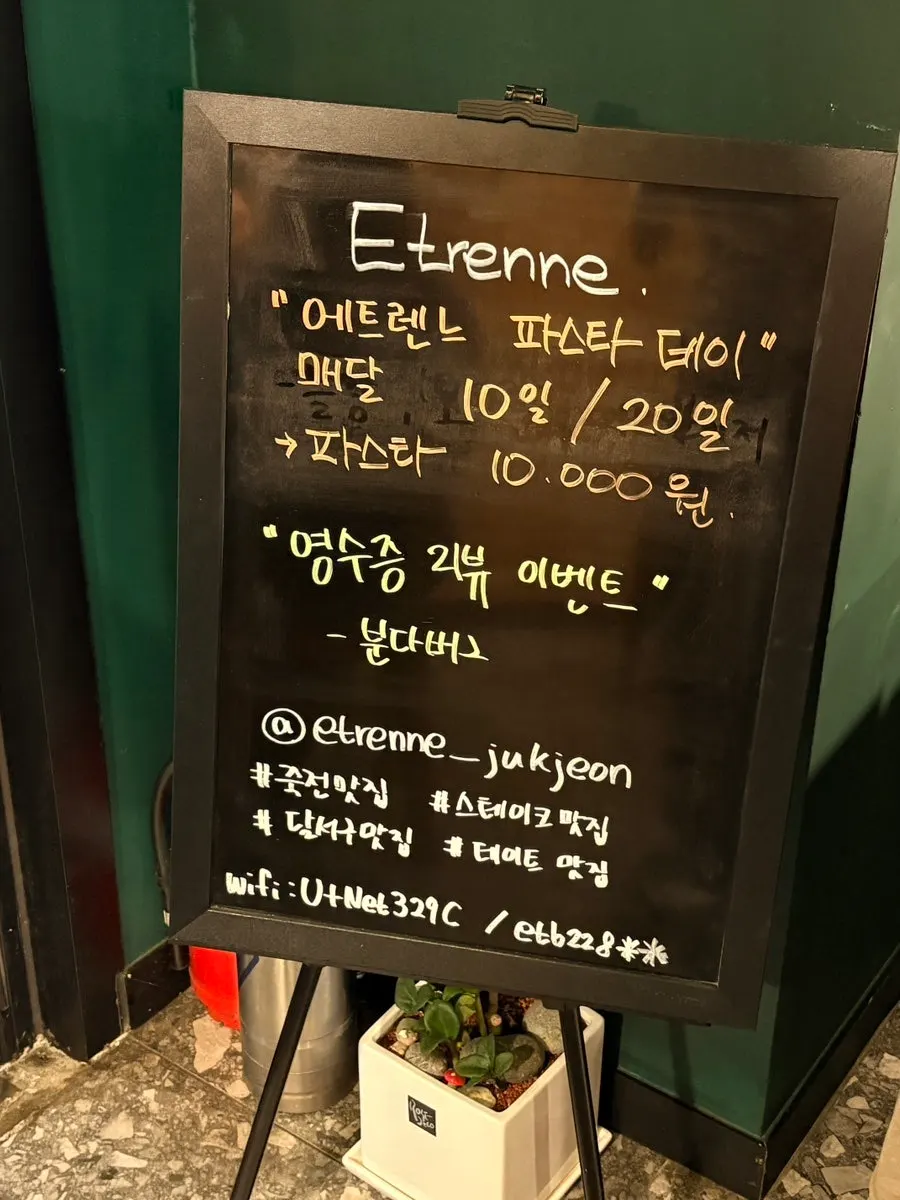 Etrenne.
"에트렌느 파스타 데이"
매달 10일 / 20일
→파스타 10.000원.
"영수증 리뷰 이벤트"
- 분다버그
@etrenne_jukjeon
#죽전맛집 #스테이크맛집
#달서구맛집 #데이트 맛집
wifi : U+Net329C / etb228**